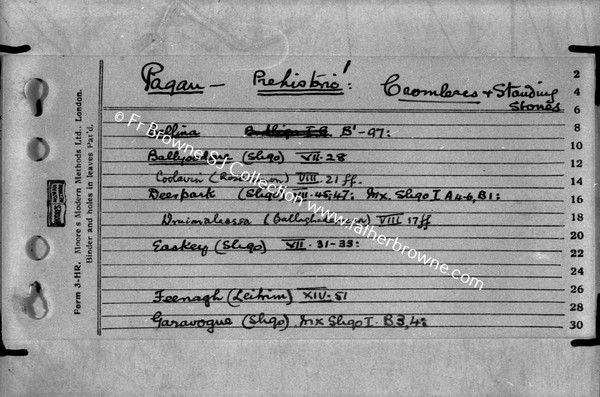 Pagan – Prehistoric! Cromlecs & Standing
Stones
2
4
6
8
10
12
14
16
18
20
22
24
26
28
30
Ballina B'-97:
(Sligo) VII. 28
Coolavin (Roscommon) VIII. 21 ff.
Deerpark (Sligo) VII. 45, 47; Mx. Sligo I A4-6, B1:
(Ballaghaderreen) VIII 17 ff
Easkey (Sligo) VII. 31-33:
Feenagh (Leitrim) XIV-51
Garavogue (Sligo) Mx Sligo I. B3,4:
Form 3-HR. Moore's Modern Methods Ltd., London.
Binder and holes in leaves Pat'd.
© Fr Browne SJ Collection www.fatherbrowne.com